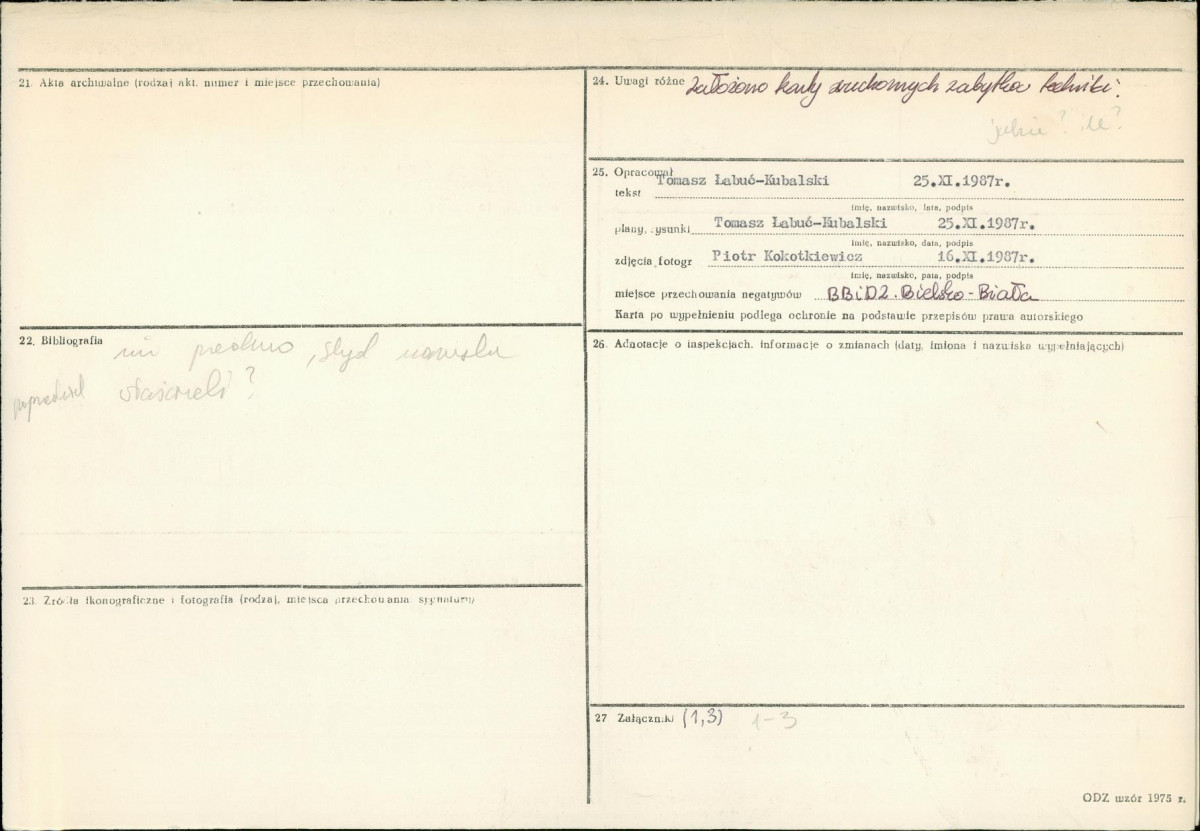 21. Akta archiwalne (rodzaj akt. numer i miejsce przechowania)
22. Bibliografia
skąd nazwiska
poprzednich właścicieli?
23. Źródła ikonograficzne i fotografia (rodzaj, miejsca przechowania. sygnatury)
24. Uwagi różne Założono karty ruchomych zabytków techniki.
jakie? ile?
25. Opracował
tekst Tomasz Łabuć-Kubalski 25.XI.1987r.
imię, nazwisko, data, podpis
plany, rysunki Tomasz Łabuć-Kubalski 25.XI.1987r.
imię, nazwisko, data, podpis
zdjęcia fotogr Piotr Kokotkiewicz 16.XI.1987r.
imię, nazwisko, data, podpis
miejsce przechowania negatywów BBiDZ. Bielsko-Biała
Karta po wypełnieniu podlega ochronie na podstawie przepisów prawa autorskiego
26. Adnotacje o inspekcjach. informacje o zmianach (daty, imiona i nazwiska wypełniających)
27 Załączniki (1,3) 1-3
ODZ wzór 1975 r.